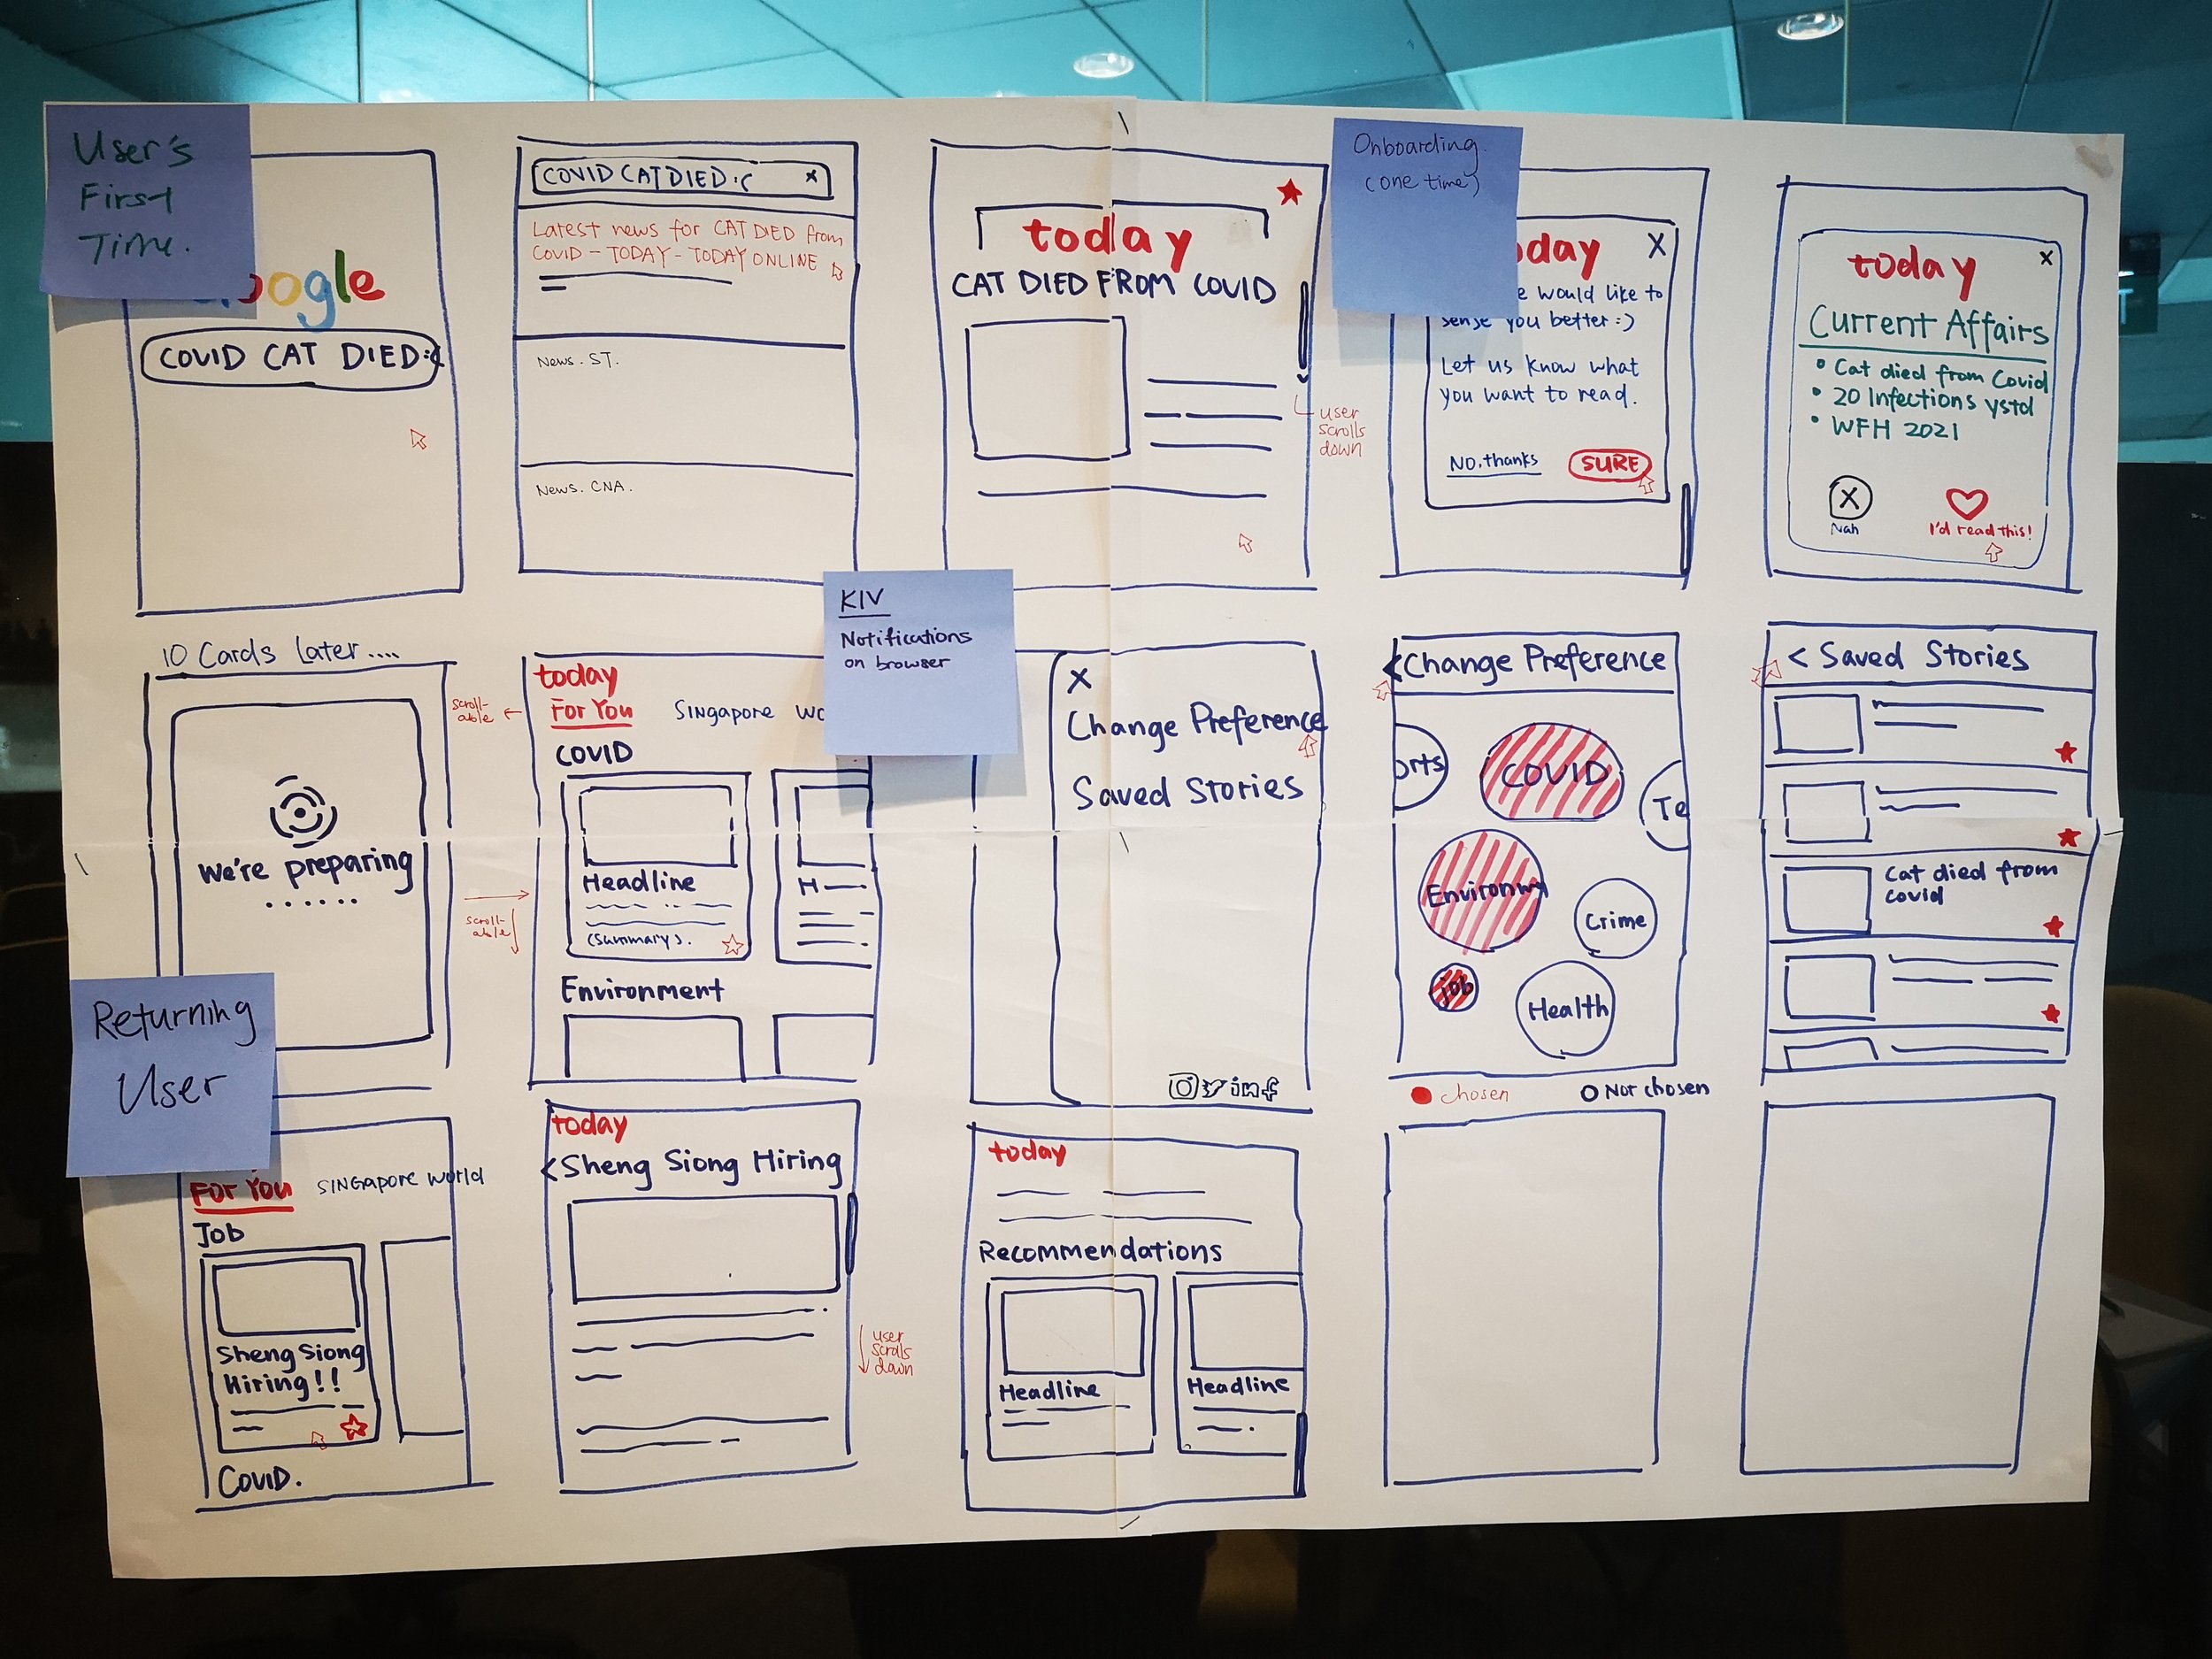 User's
First
Time.
Google
COVID CAT DIED:(
COVID CAT DIED:( x
Latest news for CAT DIED from
COVID - TODAY - TODAY ONLINE
News. ST.
News. CNA.
today
CAT DIED FROM COVID
user
scrolls
down
Onboarding
(one time)
day X
would like to
sense you better :)
Let us know what
you want to read.
No, thanks SURE
today x
Current Affairs
• Cat died from Covid
• 20 Infections ystd
• WFH 2021
X
Nah I'd read this!
10 Cards Later....
We're preparing
......
scroll-
able
scroll-
able
today
For You Singapore Wo
COVID
Headline H
(summary).
Environment
KIV
Notifications
on browser
X
Change Preference
Saved Stories
in f
< Change Preference
orts COVID Te
Environm
Crime
Job
Health
chosen Not chosen
< Saved Stories
Cat died from
covid
Returning
User
For You Singapore World
Job
Sheng Siong
Hiring!!
COVID.
today
< Sheng Siong Hiring
user
scrolls
down
today
Recommendations
Headline Headline